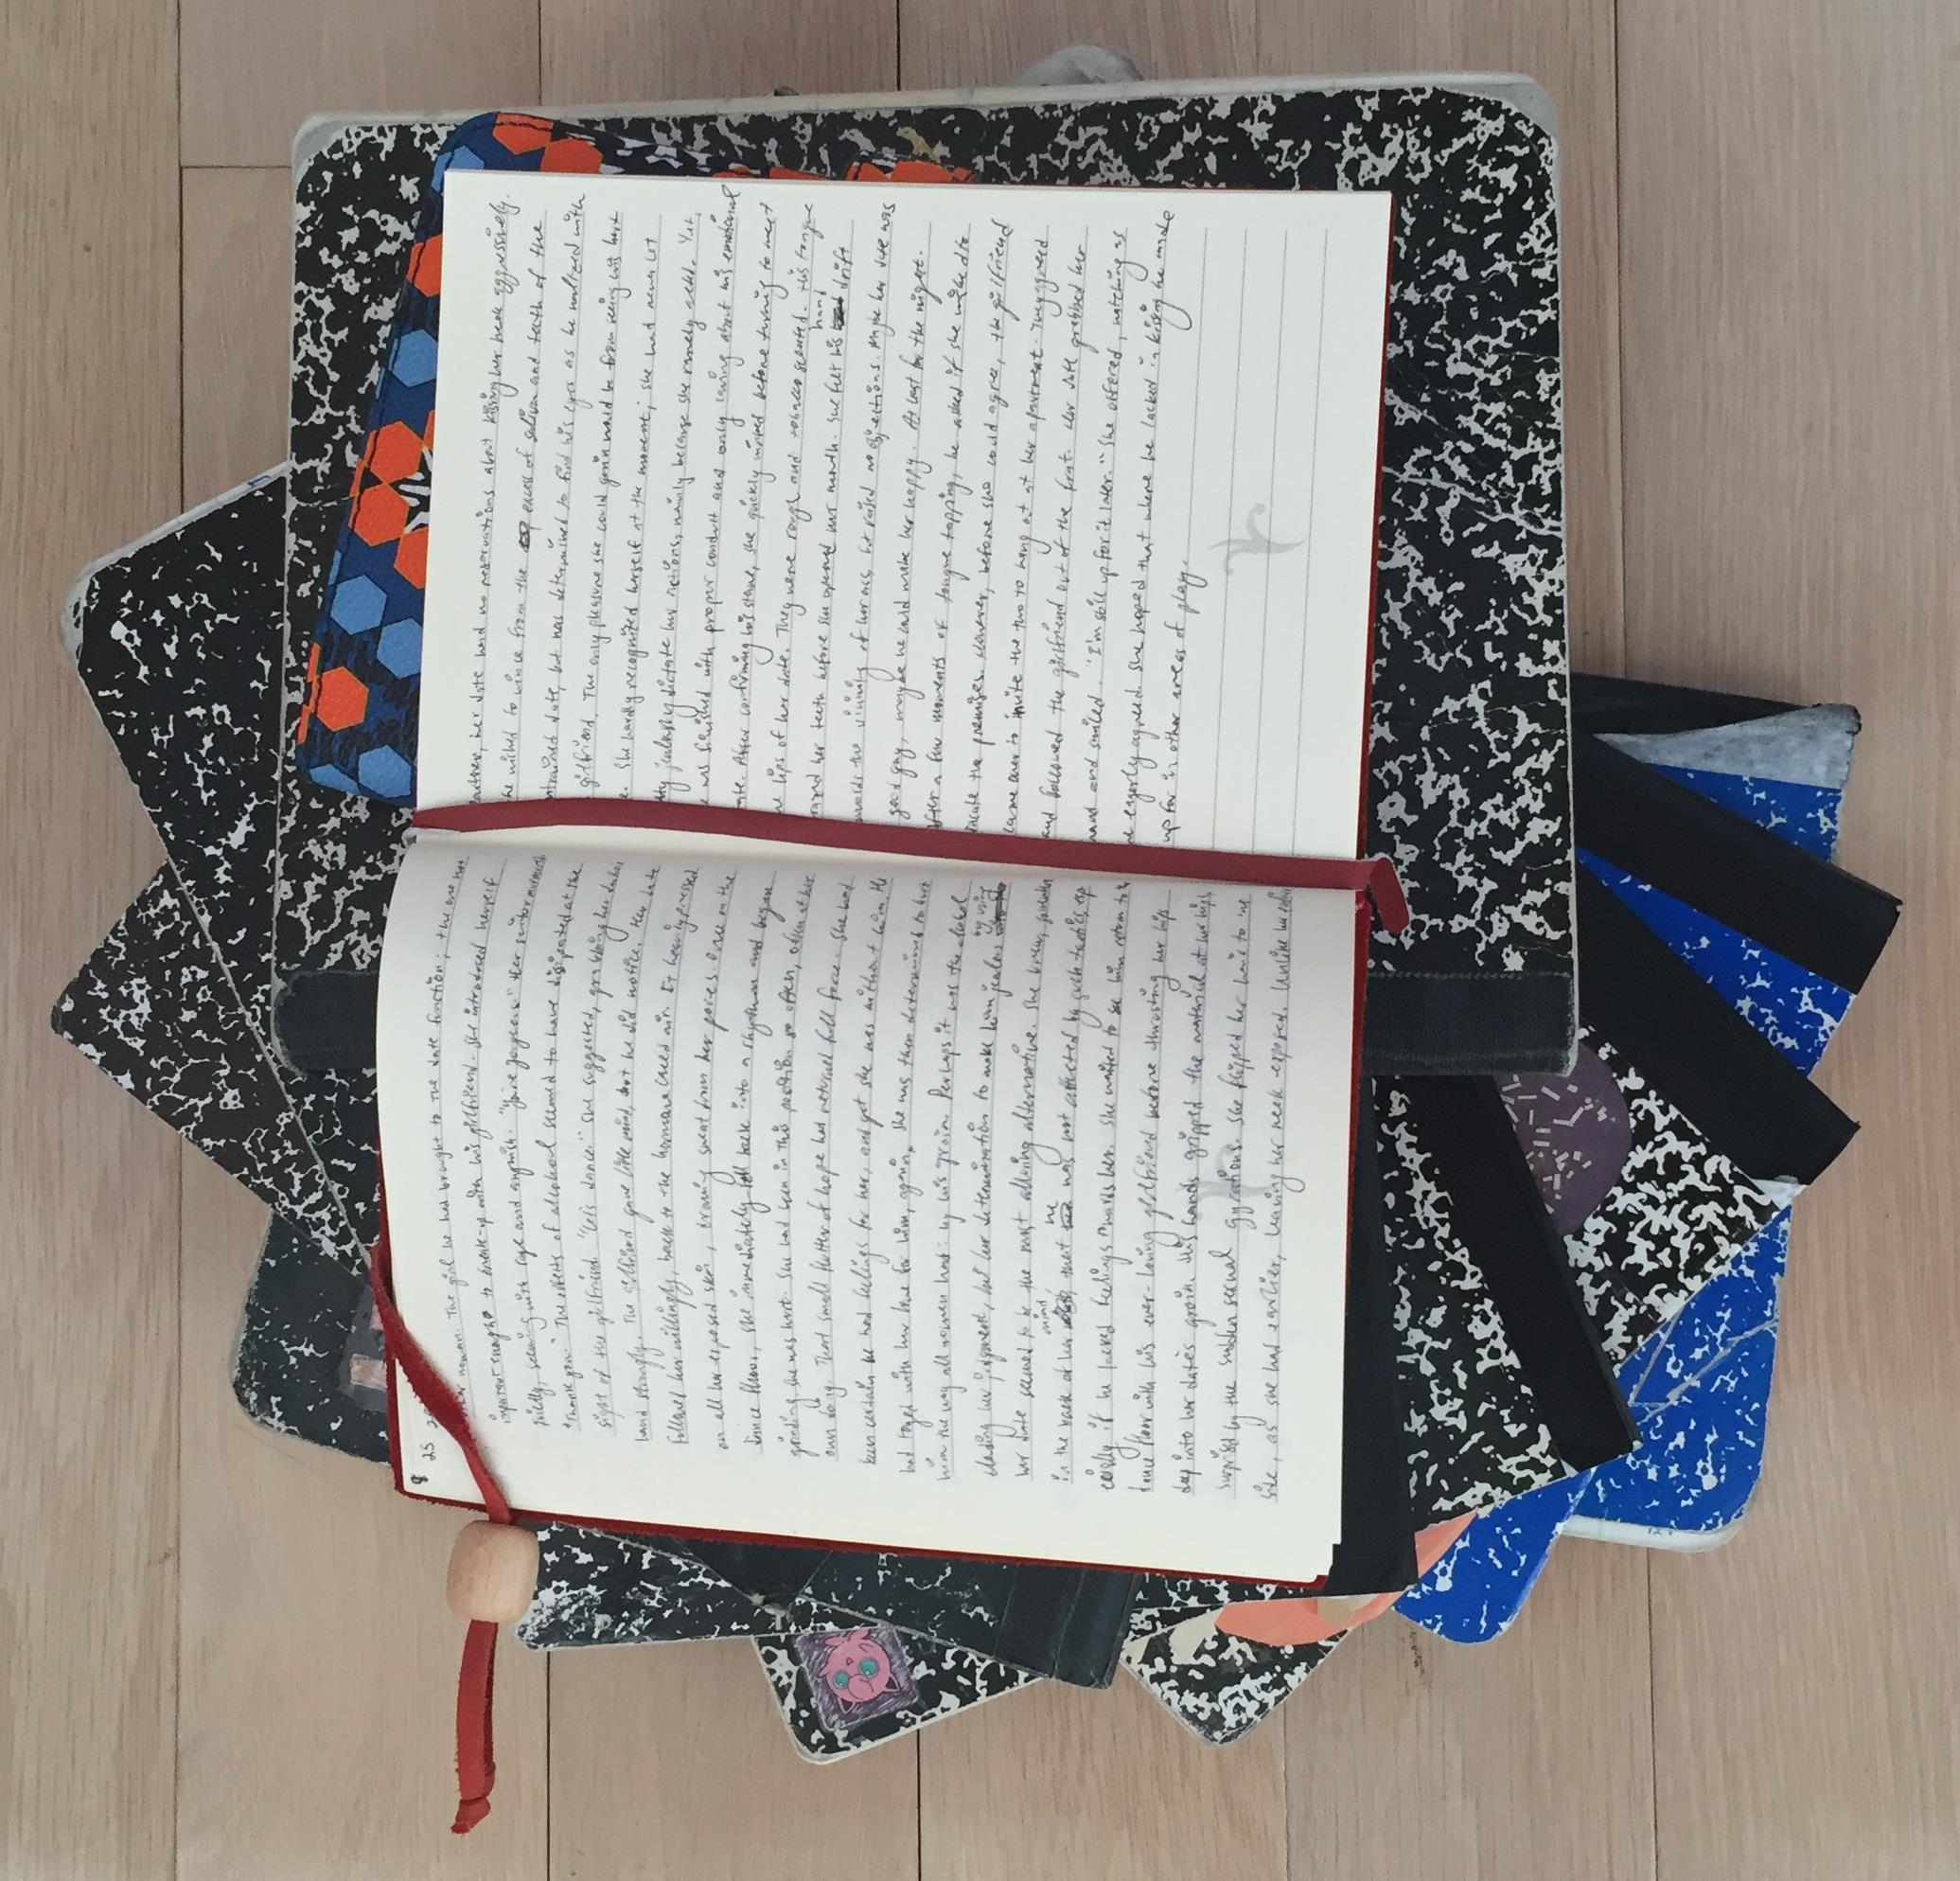 8 25
woman. The girl he had brought to the date function; the one not
important enough to break-up with his girlfriend. She introduced herself
quickly, seeming with rage and anguish. "You're gorgeous." Her suitor
"Thank you." The effects of alcohol seemed to have dissipated at the
sight of the girlfriend. "Let's dance." she suggested, grabbing her dates
hand strongly. The girlfriend gave little mind, but he did notice. Her date
followed her willingly, back to the hormone laced air. It heavily pressed
on all her exposed skin, drawing sweat from her pores. Once on the
dance floor, she immediately fell back into a rhythm and began
grinding. She was hurt. She had been in this position so often, often at her
own doing. That small flutter of hope had returned full force. She had
been certain he had feelings for her, and yet she was without him. He
had toyed with her love for him, again. She was then determined to hurt
him the way all women had: by his groin. Perhaps it was the alcohol
clouding her judgment, but her determination to make him jealous by using
her date seemed to be the most alluring alternative. She knew, somewhere
in the back of her mind, that he was not affected by such tactics, esp
ecially if he lacked feelings towards her. She waited to see him return to the
dance floor with his ever-loving girlfriend before thrusting her hips
deep into her date's groin. His hands gripped the material at her hips,
surprised by the sudden sexual gyrations. She flipped her hair to one
side, as she had earlier, leaving her neck exposed. Unlike her
partner, her date had no reservations about kissing her neck aggressively.
he wished to wince from the excess of saliva and teeth of the
date, but was determined to find his eyes as he waltzed with
girlfriend. The only pleasure she could gain would be from seeing his hurt
e. She hardly recognized herself at the moment; she had never let
jealousy dictate her actions, mainly because she rarely acted. Yet,
was finished with proper conduct and only caring about his emotional
ate. After confirming his stare, she quickly winked before turning to meet
he lips of her date. They were rough and tobacco scented. His tongue
grazed her teeth before she opened her mouth. She felt his hand drift
wards the vicinity of her ass, but raised no objections. Maybe her date was
good guy, maybe he could make her happy. At least for the night.
After a few moments of tongue tapping, he asked if she wished to
vacate the premises. However, before she could agree, the girlfriend
came over to invite the two to hang out at her apartment. They agreed
and followed the girlfriend out of the front. Her date grabbed her
hand and smiled. "I'm still up for it later." She offered, watching as
he eagerly agreed. She hoped that where he lacked in kissing he made
up for in other areas of play.